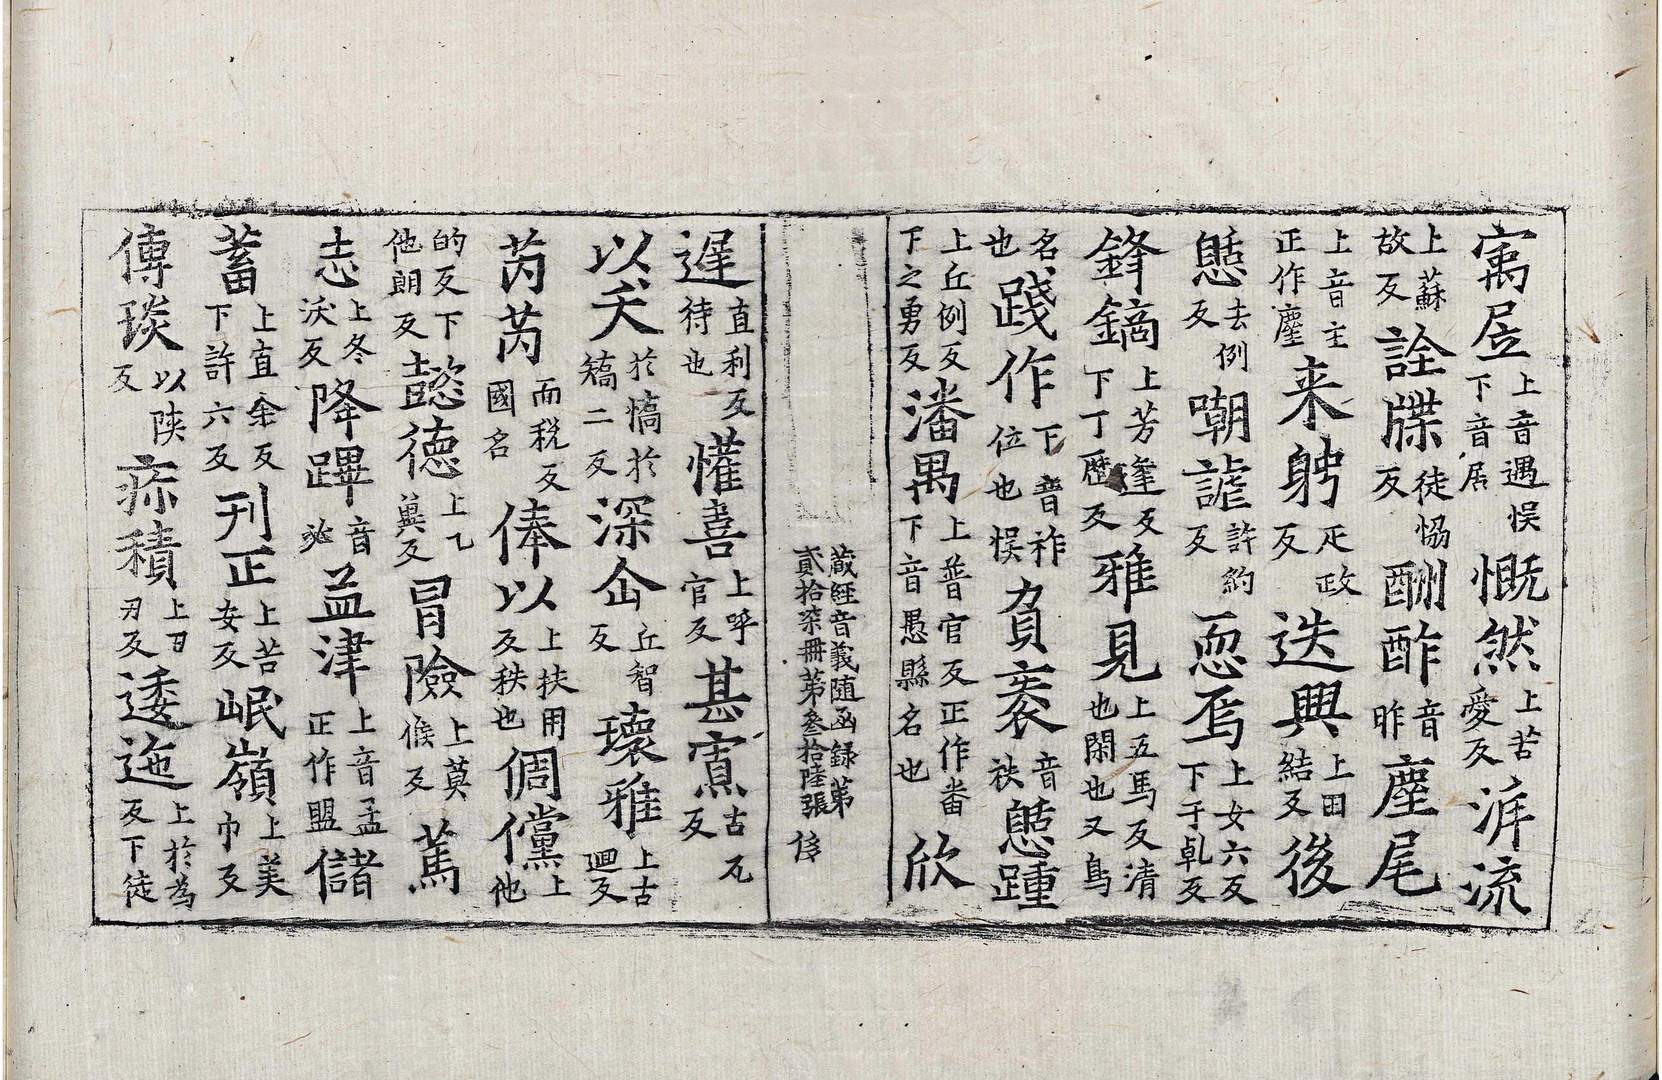 寓㞐上音遇悮下音居慨然上苦愛反泝流
上蘇故反詮牒徒恊反酬酢音昨塵尾
上音主正作麈来躬疋政反迭興上田結反後
㥏去例反嘲謔許約反恧焉上女六反下于乹反
鋒鏑上芳逢反下丁歷反雅見上五馬反清也閑也又鳥
名也踐作下音祚位也悮負袠音袂㥏踵
上丘例反下之勇反潘禺上普官反正作番下音愚縣名也欣
藏經音義随函録第貳拾柒冊第叁拾陸張 侈
遲直利反待也懽喜上呼官反甚寡古瓦反
以夭於憍於矯二反深企丘智反瓌雅上古迴反
芮芮而税反國名俸以上扶用反秩也倜儻上他
的反下他朗反懿德上乙冀反冒險上莫候反篤
志上冬沃反降蹕音必益津上音孟正作盟儲
蓄上直余反下許六反刊正上苦安反岷嶺上美巾反
傳琰以陝反疢積上丑刃反逶迤上於為反下徒